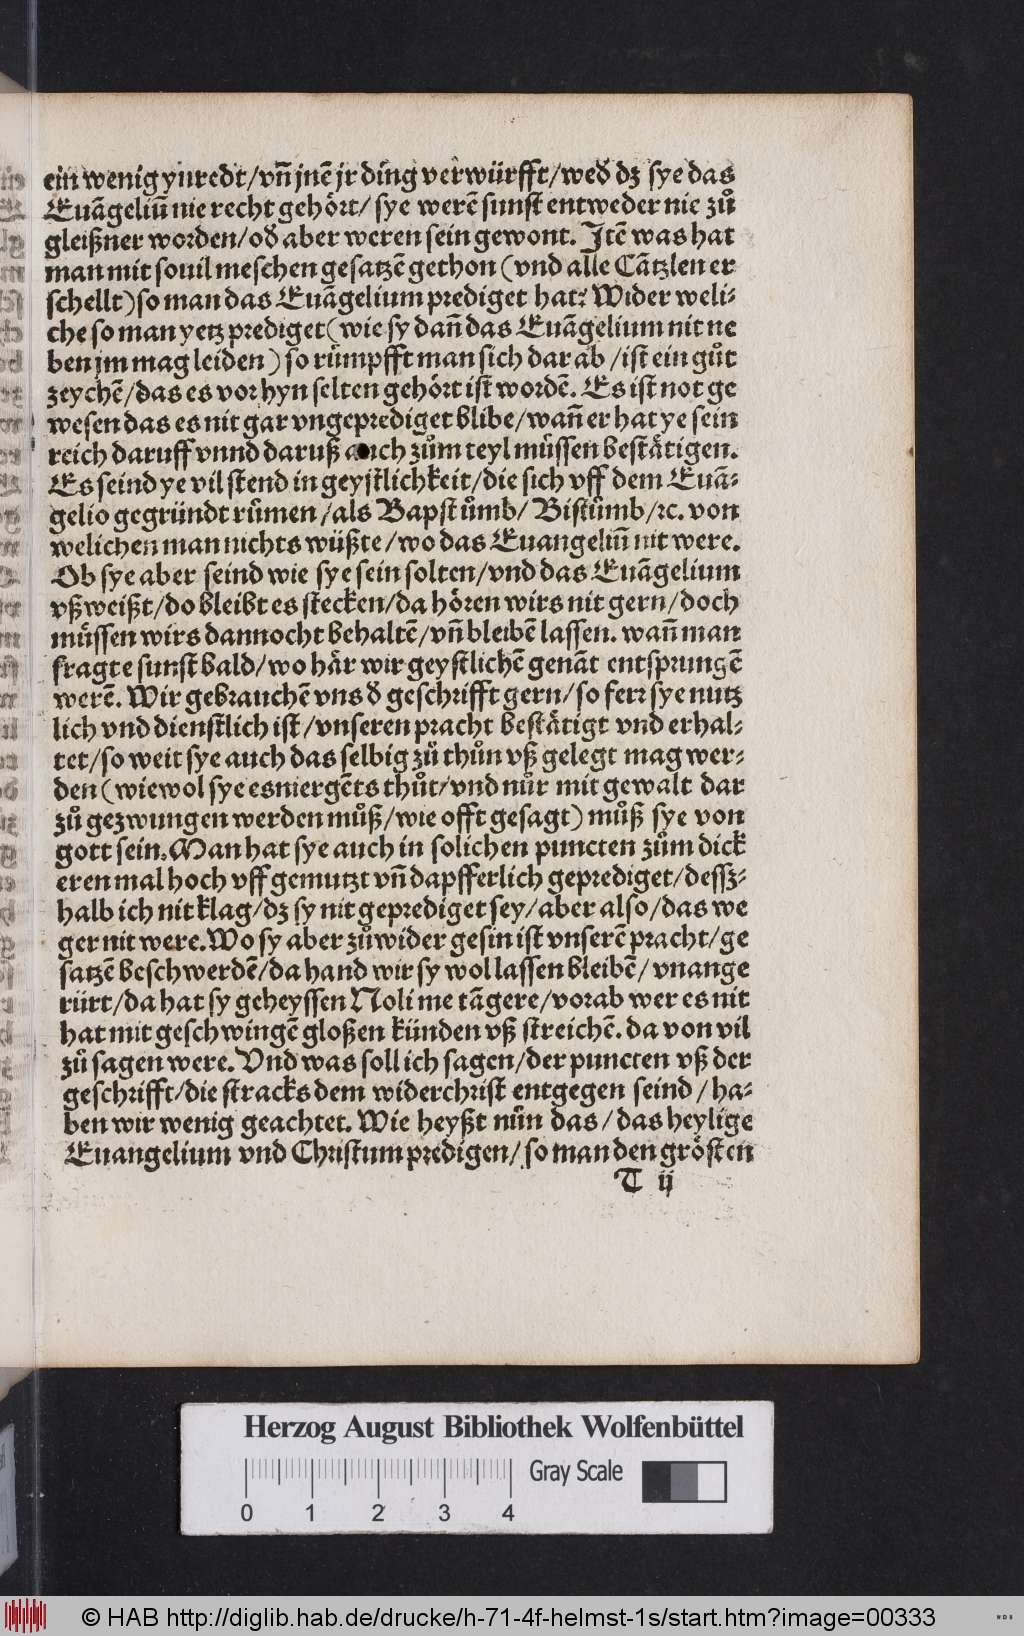 ein wenig ynredt/vn̄ jnē jr ding verwürfft/wed̄ dz sye das
Euāgeliū nie recht gehört/ sye werē sunst entweder nie zů
gleißner worden/od̄ aber weren sein gewont. Jtē was hat
man mit souil meschen gesatzē gethon (vnd alle Cātzlen er
schellt) so man das Euāgelium prediget hat? Wider weli⸗
che so man yetz prediget (wie sy dan̄ das Euāgelium nit ne
ben jm mag leiden) so rümpfft man sich dar ab /ist ein gůt
zeychē/das es vor hyn selten gehört ist wordē. Es ist not ge
wesen das es nit gar vngeprediget blibe/wan̄ er hat ye sein
reich daruff vnnd daruß auch zům teyl müssen bestätigen.
Es seind ye vil stend in geystlichkeit/die sich vff dem Euā⸗
gelio gegründt růmen /als Bapstůmb/ Bistůmb/ꝛc. von
welichen man nichts wüßte/wo das Euangeliū nit were.
Ob sye aber seind wie sye sein solten/vnd das Euāgelium
vßweißt/do bleibt es stecken/da hören wirs nit gern/doch
müssen wirs dannocht behaltē/vn̄ bleibē lassen. wan̄ man
fragte sunst bald/wo här wir geystlichē genāt entsprungē
werē. Wir gebrauchē vns d̄ geschrifft gern/so ferr sye nutz
lich vnd dienstlich ist/vnseren pracht bestätigt vnd erhal⸗
tet/so weit sye auch das selbig zů thůn vß gelegt mag wer⸗
den (wiewol sye es niergēts thůt/vnd nůr mit gewalt dar
zů gezwungen werden můß/wie offt gesagt) můß sye von
gott sein. Man hat sye auch in solichen puncten zům dick
eren mal hoch vff gemutzt vn̄ dapfferlich geprediget/dessz⸗
halb ich nit klag/dz sy nit geprediget sey/aber also/das we
ger nit were. Wo sy aber zůwider gesin ist vnserē pracht/ge
satzē beschwerdē/da hand wir sy wol lassen bleibē/ vnange
rürt/da hat sy geheyssen Noli me tāgere/vorab wer es nit
hat mit geschwingē gloßen künden vß streichē. da von vil
zů sagen were. Vnd was soll ich sagen/der puncten vß der
geschrifft/die stracks dem widerchrist entgegen seind / ha⸗
ben wir wenig geachtet. Wie heyßt nůn das/das heylige
Euangelium vnd Christum predigen/ so man den grösten
T ij
Herzog August Bibliothek Wolfenbüttel
Gray Scale
0 1 2 3 4
© HAB http://diglib.hab.de/drucke/h-71-4f-helmst-1s/start.htm?image=00333